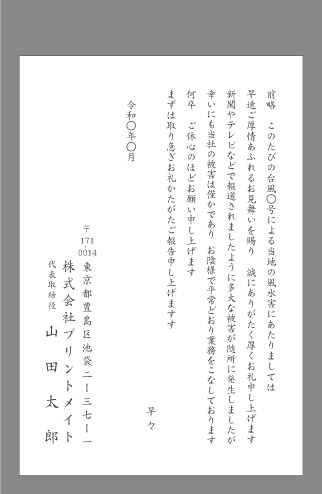 前略　このたびの台風〇号による当地の風水害にあたりましては
早速ご厚情あふれるお見舞いを賜り　誠にありがたく厚くお礼申し上げます
新聞やテレビなどで報道されましたように多大な被害が随所に発生しましたが
幸いにも当社の被害は僅かであり　お陰様で平常どおり業務をこなしております
何卒　ご休心のほどお願い申し上げます
まずは取り急ぎお礼かたがたご報告申し上げます
早々
令和〇年〇月
〒171-0014
東京都豊島区池袋二ー三七ー一
株式会社プリントメイト
代表取締役　山田太郎